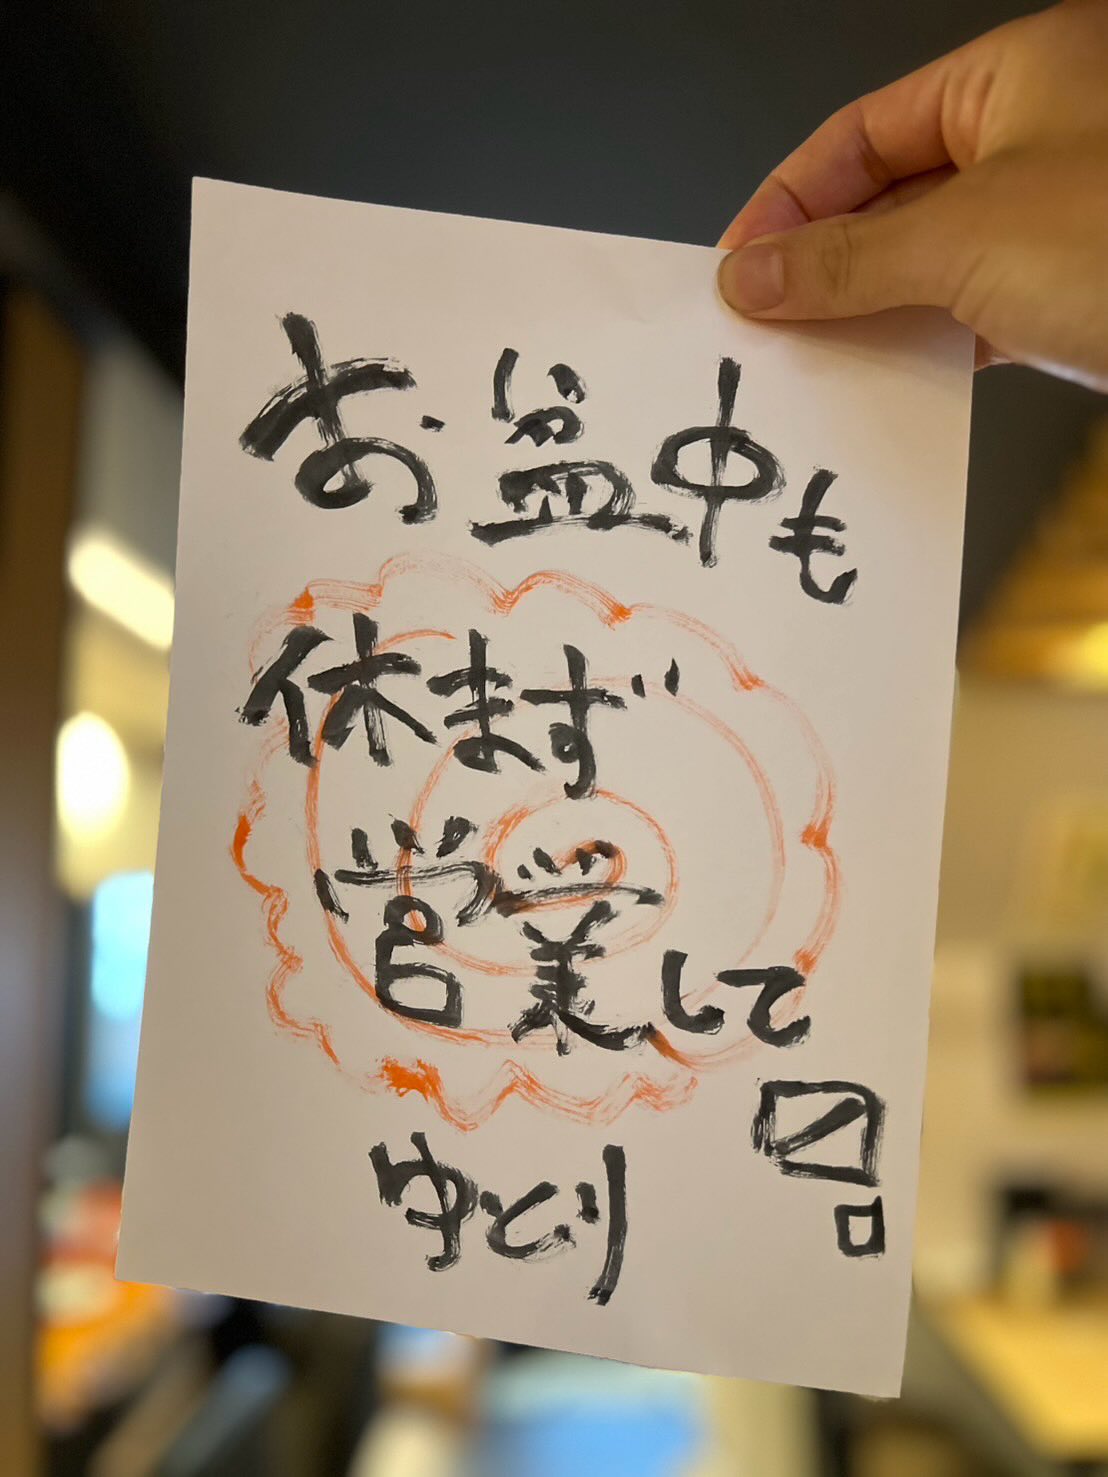 お盆中も
休まず
営業して
〼。
ゆとり